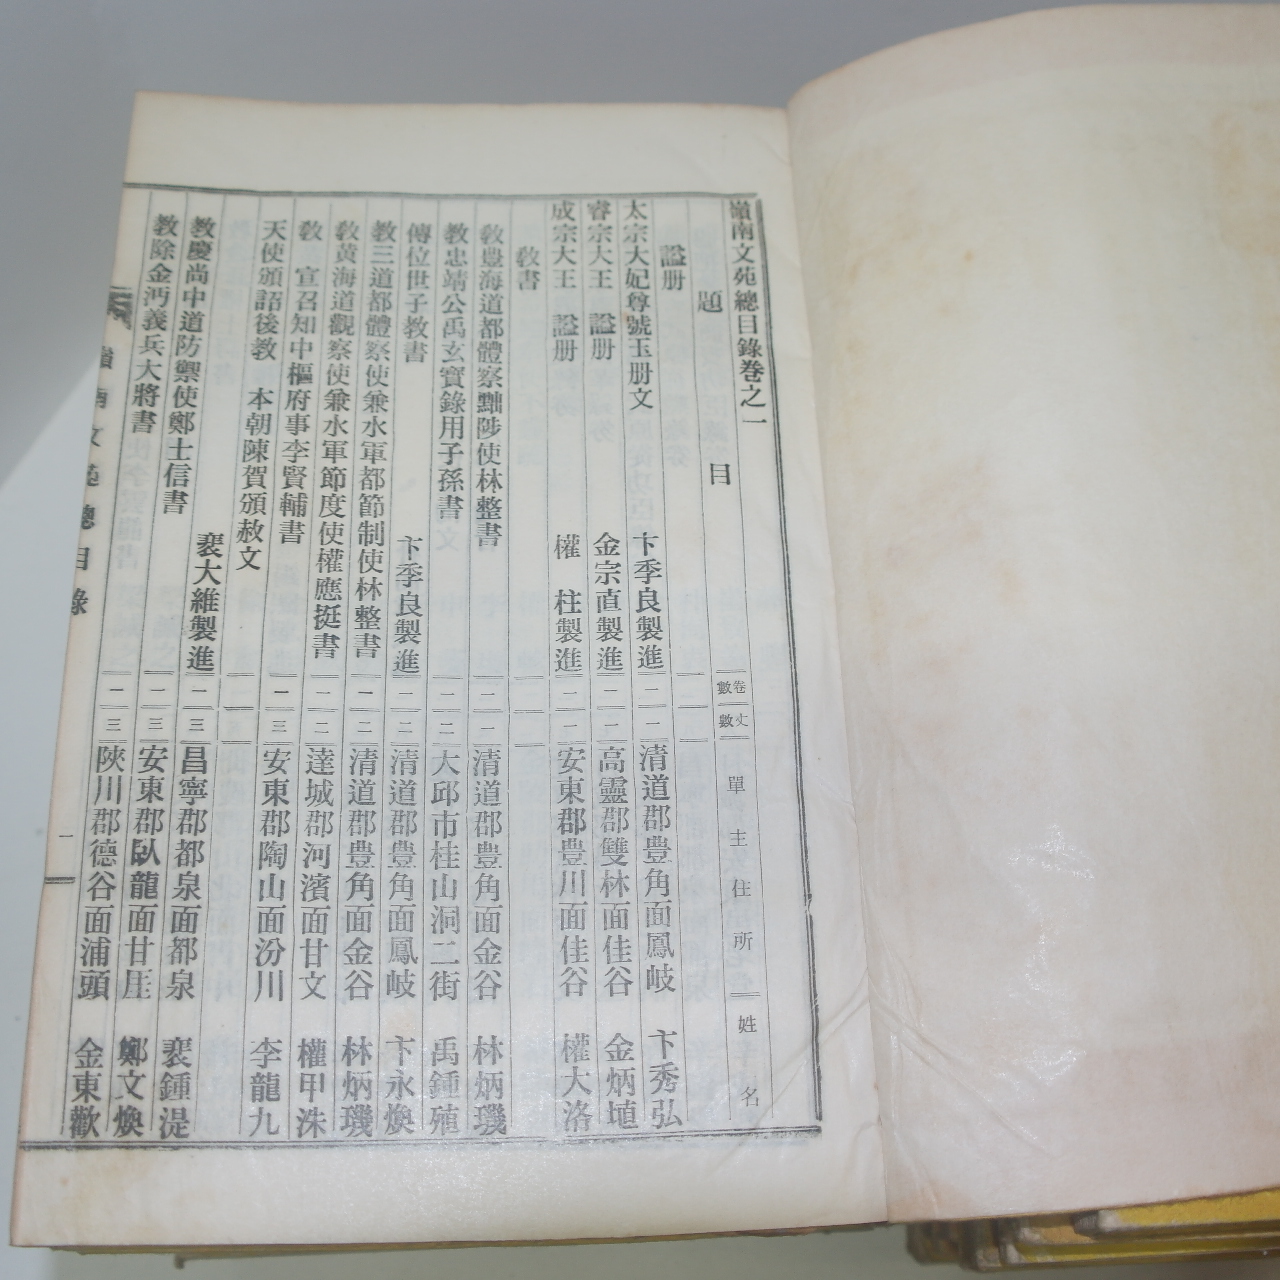 嶺南文苑總目錄卷之一
題 目 卷數 丈數 單主住所 姓名
諡册
太宗大妃尊號玉册文 卞季良製進 二 一 清道郡豊角面鳳岐 卞秀弘
睿宗大王 諡册 金宗直製進 二 一 高靈郡雙林面佳谷 金炳埴
成宗大王 諡册 權 柱製進 二 一 安東郡豊川面佳谷 權大洛
教書
教豊海道都體察黜陟使林整書 二 一 清道郡豊角面金谷 林炳璣
教忠靖公禹玄寶錄用子孫書 二 二 大邱市桂山洞二街 禹鍾殖
傳位世子教書 卞季良製進 二 二 清道郡豊角面鳳岐 卞永煥
教三道都體察使兼水軍都節制使林整書 二 二 清道郡豊角面金谷 林炳璣
教黃海道觀察使兼水軍節度使權應挺書 二 二 達城郡河濱面甘文 權甲洙
教 宣召知中樞府事李賢輔書 二 三 安東郡陶山面汾川 李龍九
天使頒詔後教 本朝陳賀頒赦文
裵大維製進 二 三 昌寧郡都泉面都泉 裵鍾湜
教慶尚中道防禦使鄭士信書 二 三 安東郡臥龍面甘厓 鄭文煥
教除金沔義兵大將書 二 三 陜川郡德谷面浦頭 金東歡
嶺南文苑總目錄 一